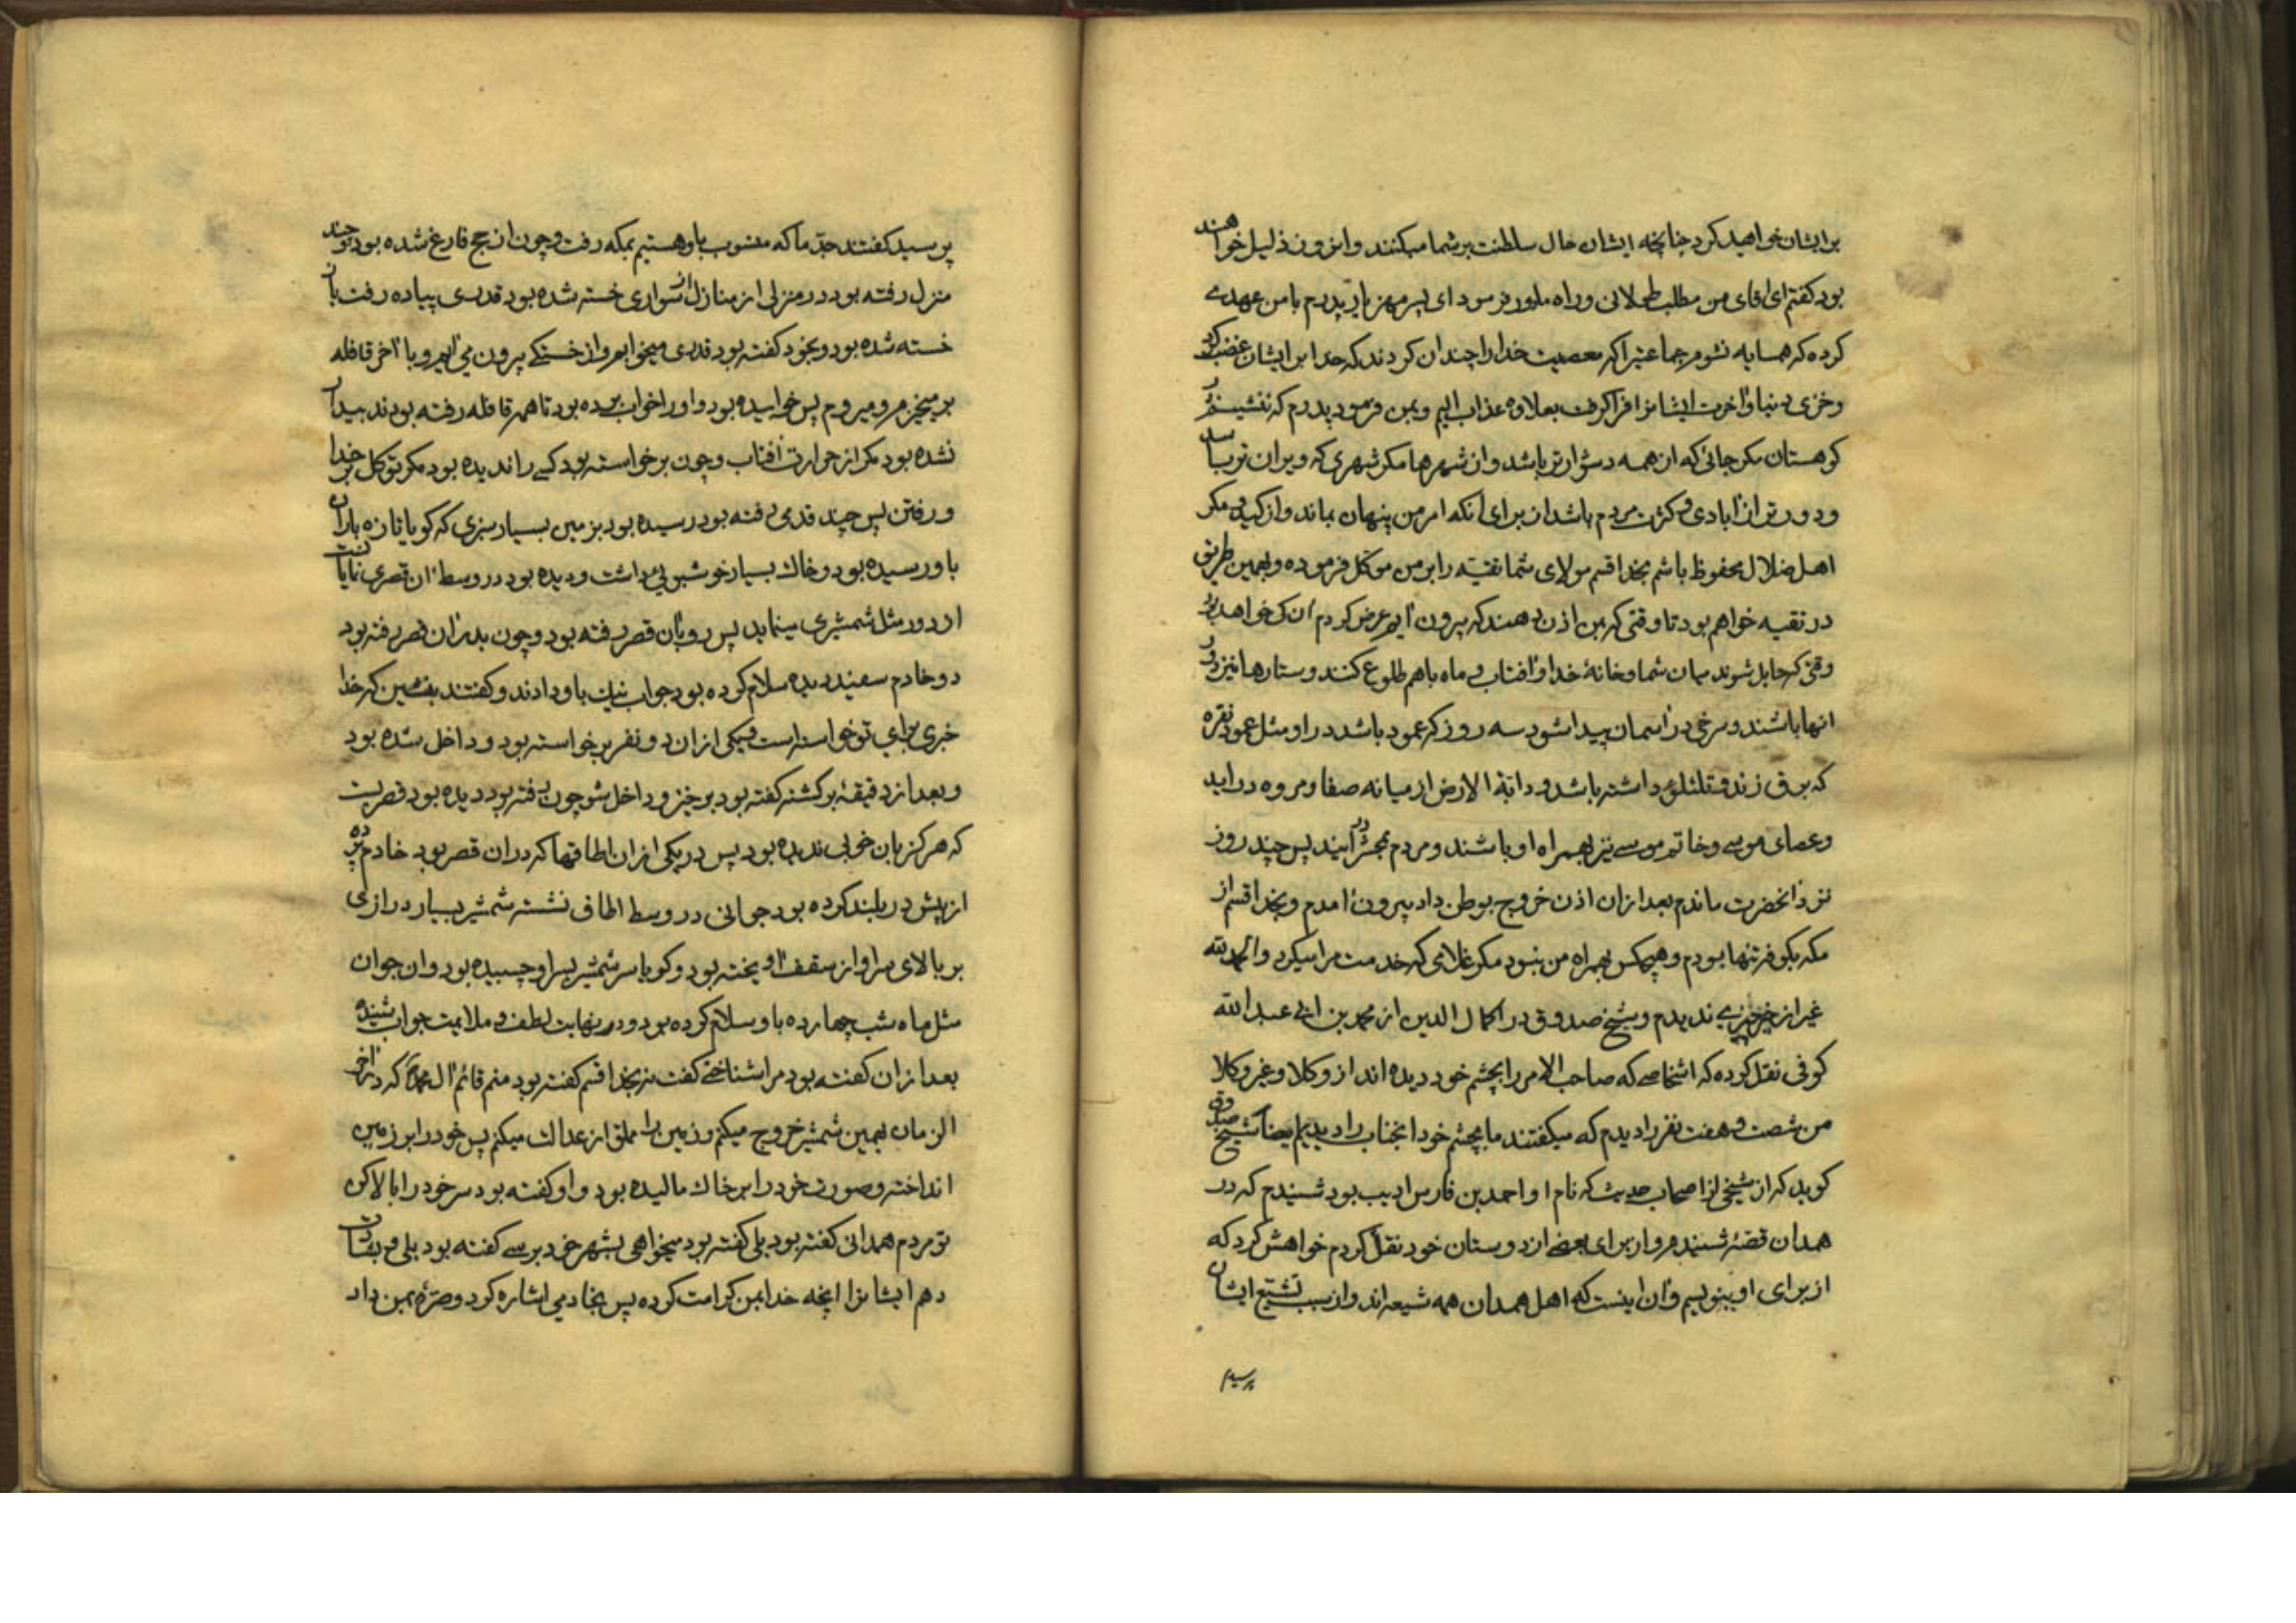 بر ایشان خواهید کرد چنانچه ایشان حال سلطنت بر شما میکنند و ایشان ذلیل خواهند
بود کفتم ای اقای من مطلب طولانی و راه ما دور فرمود ای پسر مهزیار پدرم با من عهدی
کرده که همسایه نشوم جماعتیرا که معصیت خدا را چندان کردند که خدا بر ایشان غضب کرد
و خزی دنیا و اخرت ایشانرا فرا کرفت بعلاوه عذاب الیم و بمن فرمود پدرم که ننشینم از
کوهستان مکر جائی که از همه دشوارتر باشد و از شهرها مکر شهری که ویران تر باشد
و دورتر از ابادی و کثرت مردم باشد از برای انکه امر من پنهان بماند و از مکر
اهل ضلال محفوظ باشم بخدا قسم مولای شما تقیه را بر من موکل فرموده و بهمین طریق
در تقیه خواهم بود تا وقتی که بمن اذن دهند که بیرون ایم عرض کردم ان کی خواهد بود
وقتی که حایل شوند میان شما و خانه خدا و افتاب و ماه با هم طلوع کنند و ستارها نیز دور
انها باشند و سرخی در اسمان پیدا شود سه روز که عمود باشد در او مثل عمود نقره
که برق زند و تلئلؤ داشته باشد و دابة الارض از میانه صفا و مروه در اید
و عصای موسی و خاتم موسی نیز بهمراه او باشند و مردم بمحشر در ایند پس چند روز
نزد انحضرت ماندم بعد از ان اذن خروج بوطن داد بیرون امدم و بخدا قسم از
مکه بکوفه تنها بودم و هیچکس همراه من نبود مکر غلامی که خدمت مرا میکرد و الحمد لله
غیر از خیر چیزی ندیدم و شیخ صدوق در اکمال الدین از محمد بن ابی عبد الله
کوفی نقل کرده که اشخاصی که صاحب الامر را بچشم خود دیده اند از وکلا و غیر وکلا
من شصت و هفت نفر را دیدم که میکفتند ما بچشم خود انجناب را دیدیم ایضا شیخ صدوق
کوید که از شیخی از اصحاب حدیث که نام او احمد بن فارس ادیب بود شنیدم که در
همدان قصهٔ شنیدم و از برای بعضی از دوستان خود نقل کردم خواهش کرد که
از برای او بنویسم و ان اینست که اهل همدان همه شیعه اند و از سبب تشیع ایشان
پرسیدم
پرسید کفتند جد ما که منسوب باو هستیم بمکه رفت و چون از حج فارغ شده بود و چند
منزل رفته بود در منزلی از منازل از سواری خسته شده بود قدری پیاده رفت باز
خسته شده بود و بخود کفته بود قدری میخوابم و از خستکی بیرون می ایم و با اخر قافله
بر میخیزم و میروم پس خوابیده بود و او را خواب برده بود تا همه قافله رفته بودند بیدار
نشده بود مکر از حرارت افتاب و چون برخواسته بود کسی را ندیده بود مکر توکل بر خدا
و رفتن پس چند قدمی رفته بود رسیده بود بزمین بسیار سبزی که کویا تازه باران
باو رسیده بود و خاک بسیار خوشبوئی داشت و دیده بود در وسط ان قصری نمایانست
از دور مثل شمشیری مینماید پس رو بان قصر رفته بود و چون بدر ان قصر رفته بود
دو خادم سفید دیده سلام کرده بود جواب نیک باو دادند و کفتند بنشین که خدا
خیری برای تو خواسته است و یکی از ان دو نفر برخواسته بود و داخل شده بود
و بعد از دقیقهٔ برکشته کفته بود برخیز و داخل شو چون رفته بود دیده بود قصریست
که هرکز بان خوبی ندیده بود پس در یکی از ان اطاقها که در ان قصر بود خادم پرده
از پیش در بلند کرده بود جوانی در وسط اطاق نشسته شمشیر بسیار درازی
بر بالای سر او از سقف اویخته بود و کویا سر شمشیر بسر او چسبیده بود و ان جوان
مثل ماه شب چهارده باو سلام کرده بود و در نهایت لطف و ملایمت جواب شنیده
بعد از ان کفته بود مرا شناختی کفت نه بخدا قسم کفته بود منم قائم ال محمد که در اخر
الزمان بهمین شمشیر خروج میکنم و زمین را مملو از عدالت میکنم پس خود را بر زمین
انداخته و صورت خود را بر خاک مالیده بود و او کفته بود سر خود را بالا کن
تو مردم همدانی کفته بود بلی کفته بود میخواهی بشهر خود برسی کفته بود بلی و بشارت
دهم ایشانرا انچه خدا بمن کرامت کرده پس بخادمی اشاره کرد و صرهٔ بمن داد